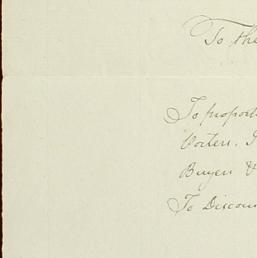 To the
To proport
Voters. I
Buyers &
To Discoun